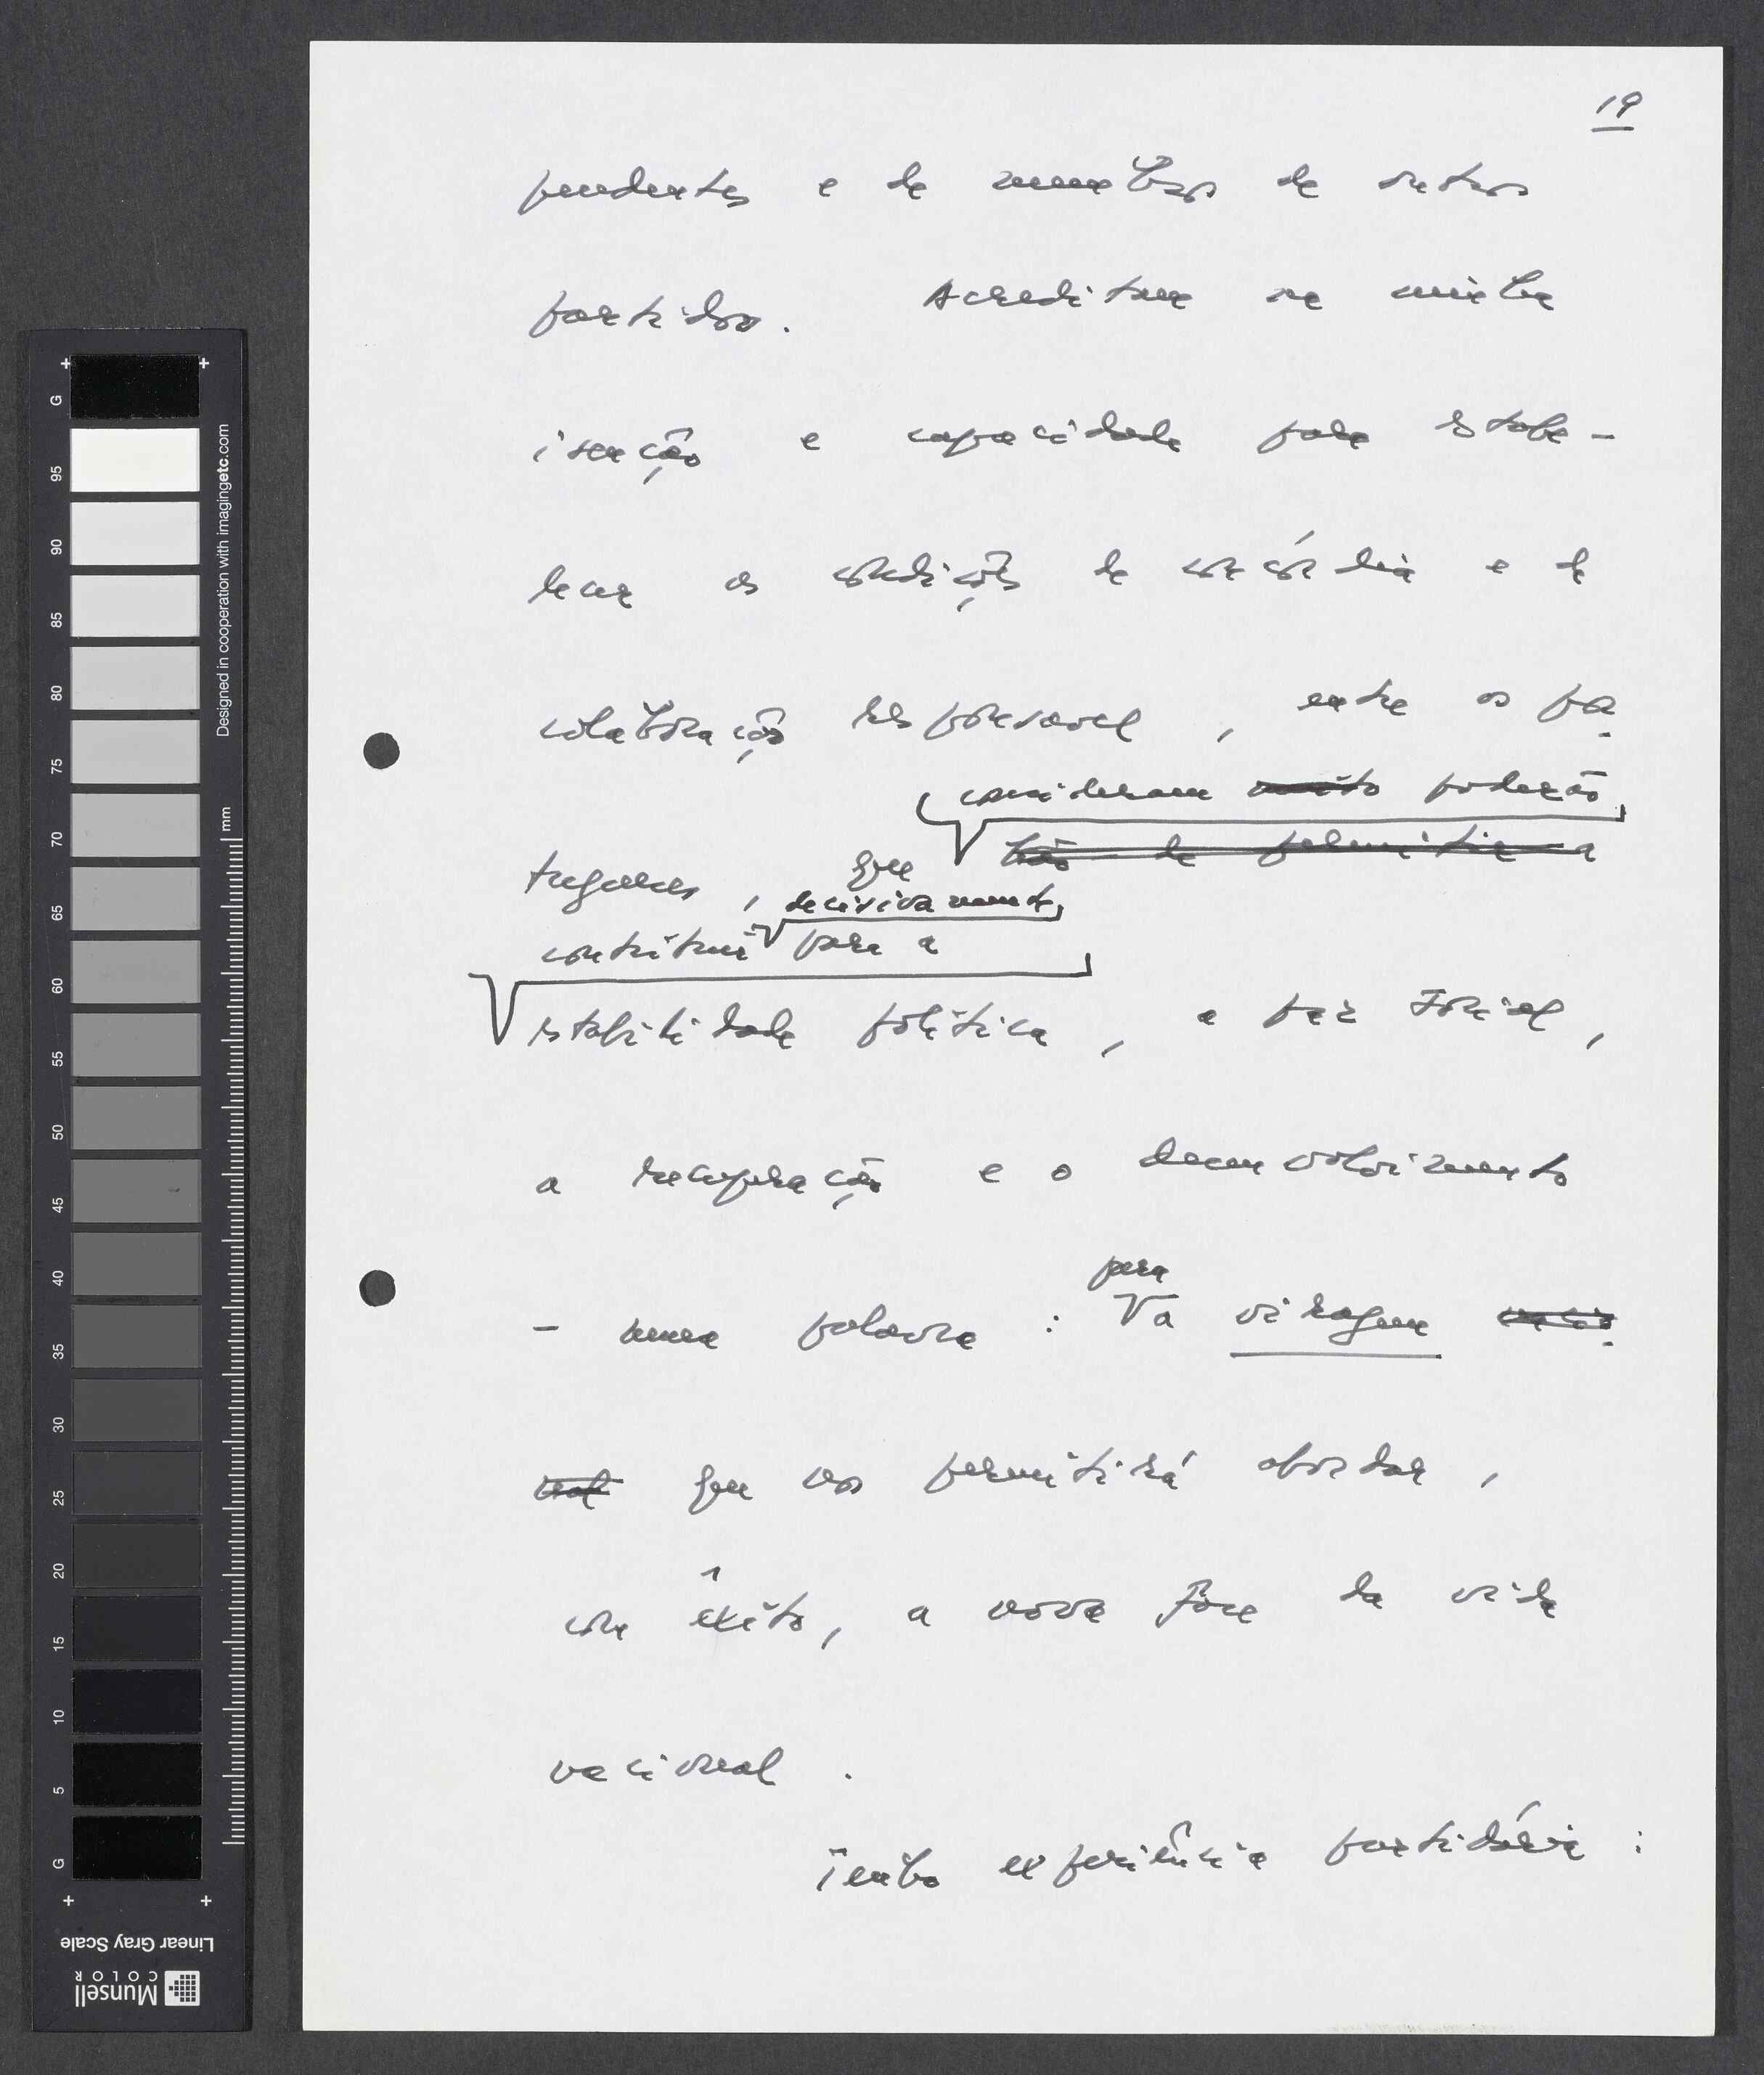 19
pendentes e de membros de outros
partidos. Acreditam na minha
isenção e capacidade para estabe-
lecer as condições de concórdia e de
colaboração responsável, entre os por
consideram muito poderão
tugueses, que hão-de permitir a
decisivamente
contribuir para a
estabilidade política, a paz social,
a recuperação e o desenvolvimento
para
- numa palavra: a viragem nacio
nal que nos permitirá abordar,
com êxito, a nova fase da vida
nacional.
Tenho experiência partidária:
G
95
90
85
80
75
70
65
60
55
50
45
40
35
30
25
20
15
10
5
G
mm
Designed in cooperation with imagingetc.com
Linear Gray Scale
Munsell
COLOR